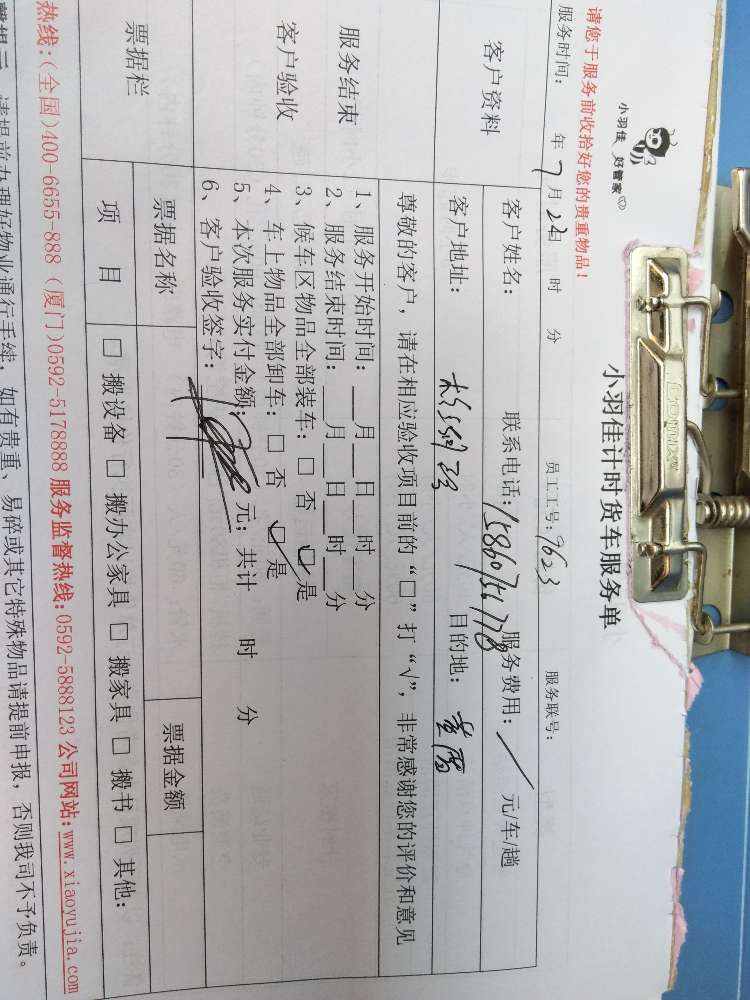 小羽佳 好管家
小羽佳计时货车服务单
请您于服务前收拾好您的贵重物品！
服务时间： 年 7 月 22日 时 分 员工工号：7623 服务联号：
客户资料
客户姓名： 联系电话：15860756778 服务费用：/ 元/车/趟
客户地址： 目的地：
尊敬的客户，请在相应验收项目前的“□”打“√”，非常感谢您的评价和意见
服务结束
客户验收
1、服务开始时间：__月__日__时__分
2、服务结束时间：__月__日__时__分
3、候车区物品全部装车：□ 否 □√是
4、车上物品全部卸车：□ 否 □√是
5、本次服务实付金额： 元；共计 时 分
6、客户验收签字：
票据栏
票据名称 票据金额
项 目 □ 搬设备 □ 搬办公家具 □ 搬家具 □ 搬书 □ 其他：
热线：(全国)400-6655-888 (厦门)0592-5178888 服务监督热线:0592-5888123 公司网站:www.xiaoyujia.com
请提前办理好物业通行手续，如有贵重、易碎或其它特殊物品请提前申报，否则我司不予负责。